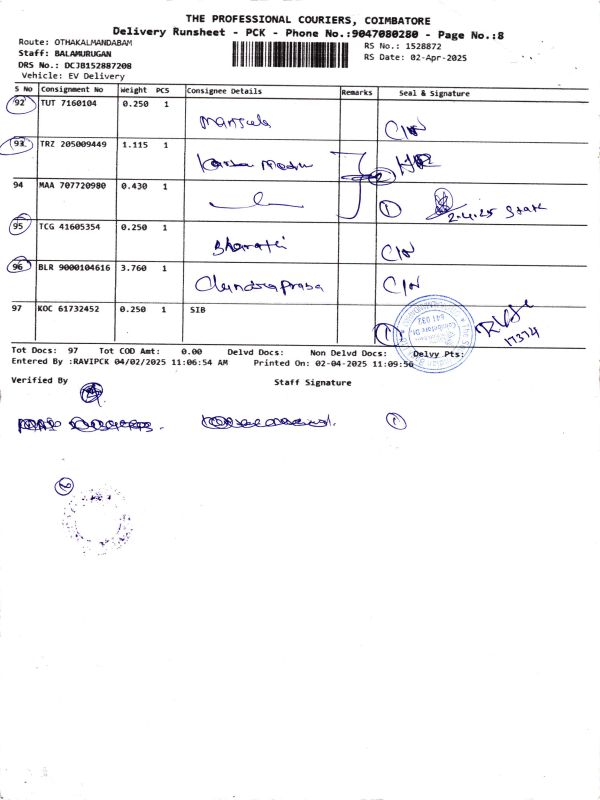 THE PROFESSIONAL COURIERS, COIMBATORE
Delivery Runsheet - PCK - Phone No.:9047080280 - Page No.:8
Route: OTHAKALMANDABAM
RS No.: 1528872
Staff: BALAMURUGAN
RS Date: 02-Apr-2025
DRS No.: DCJB152887208
Vehicle: EV Delivery
S No Consignment No Weight PCS Consignee Details Remarks Seal & Signature
92 TUT 7160104 0.250 1
Manjula
93 TRZ 205009449 1.115 1
94 MAA 707720980 0.430 1
1 2.4.25
95 TCG 41605354 0.250 1
Bharathi
96 BLR 9000104616 3.760 1
97 KOC 61732452 0.250 1 SIB
1 641 032
17374
Tot Docs: 97 Tot COD Amt: 0.00 Delvd Docs: Non Delvd Docs: Delvy Pts:
Entered By :RAVIPCK 04/02/2025 11:06:54 AM Printed On: 02-04-2025 11:09:56
Verified By Staff Signature
1